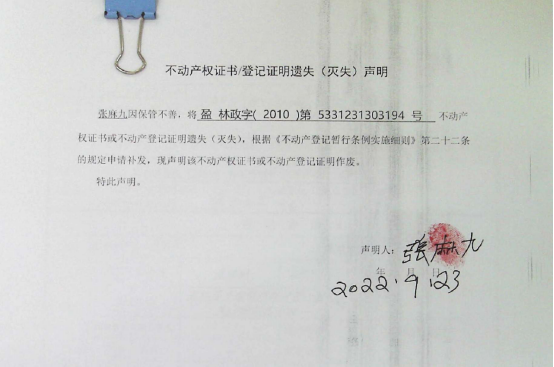 不动产权证书/登记证明遗失（灭失）声明
张麻九因保管不善，将 盈 林政字( 2010 )第 5331231303194 号 不动产
权证书或不动产登记证明遗失（灭失），根据《不动产登记暂行条例实施细则》第二十二条
的规定申请补发，现声明该不动产权证书或不动产登记证明作废。
特此声明。
声明人：张麻九
年 月 日
2022.9.23